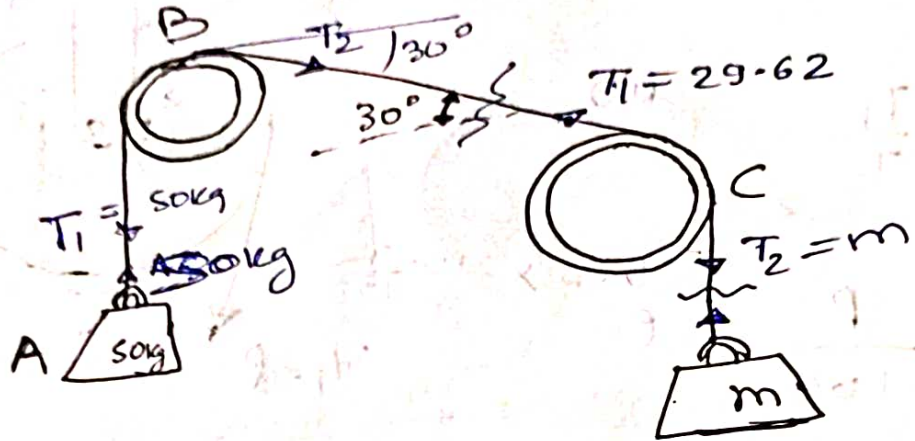 B
T2
30°
30°
T1 = 29.62
C
T1 =
50kg
50kg
T2 = m
A
50kg
m